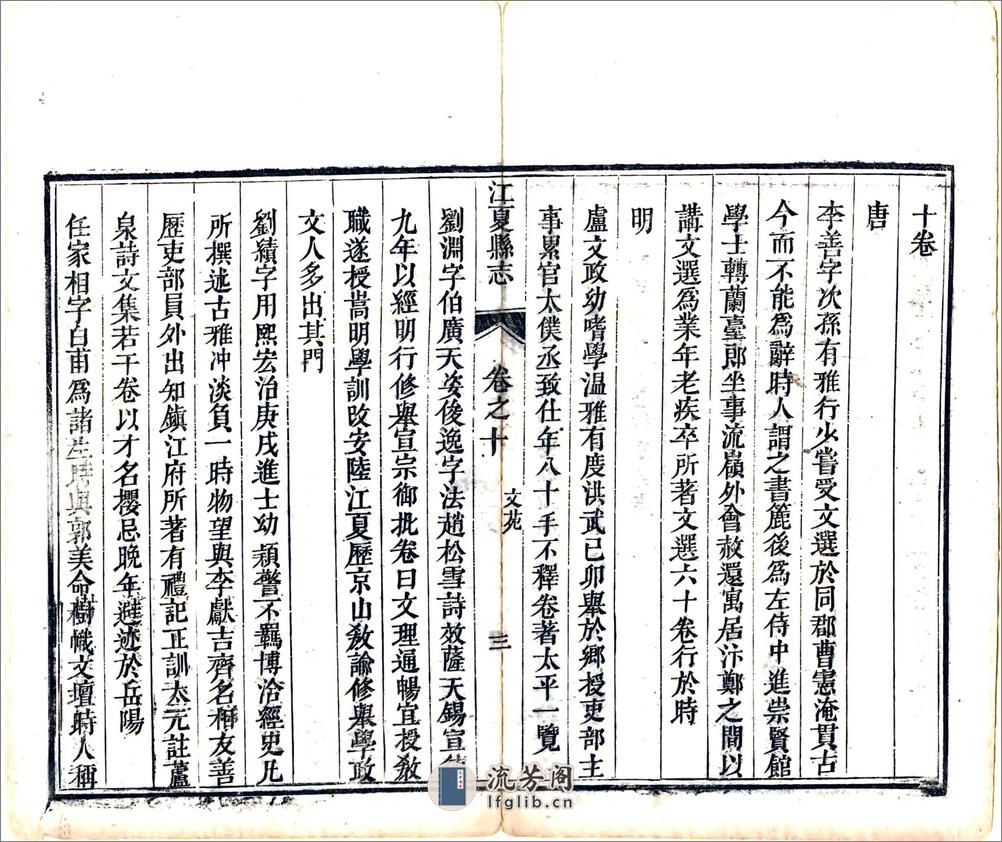 十卷
唐
李善字次孫有雅行少嘗受文選於同郡曹憲淹貫古
今而不能爲辭時人謂之書簏後爲左侍中進崇賢館
學士轉蘭臺郎坐事流嶺外會赦還寓居汴鄭之間以
講文選爲業年老疾卒所著文選六十卷行於時
明
盧文政幼嗜學温雅有度洪武己卯舉於鄉授吏部主
事累官太僕丞致仕年八十手不釋卷著太平一覽
江夏縣志
卷之十
文苑
三
劉淵字伯廣天姿俊逸字法趙松雪詩效薩天錫宣
九年以經明行修舉宣宗御批卷曰文理通暢宜授敎
職遂授嵩明學訓改安陸江夏歷京山敎諭修舉學政
文人多出其門
劉績字用熙宏治庚戌進士幼穎警不羈博洽經史凡
所撰述古雅冲淡負一時物望與李獻吉齊名相友善
歷吏部員外出知鎮江府所著有禮記正訓太元註蘆
泉詩文集若干卷以才名櫻忌晚年遯迹於岳陽
任家相字白甫爲諸生時與郭美命樹幟文壇時人稱
流芳阁
lfglib.cn